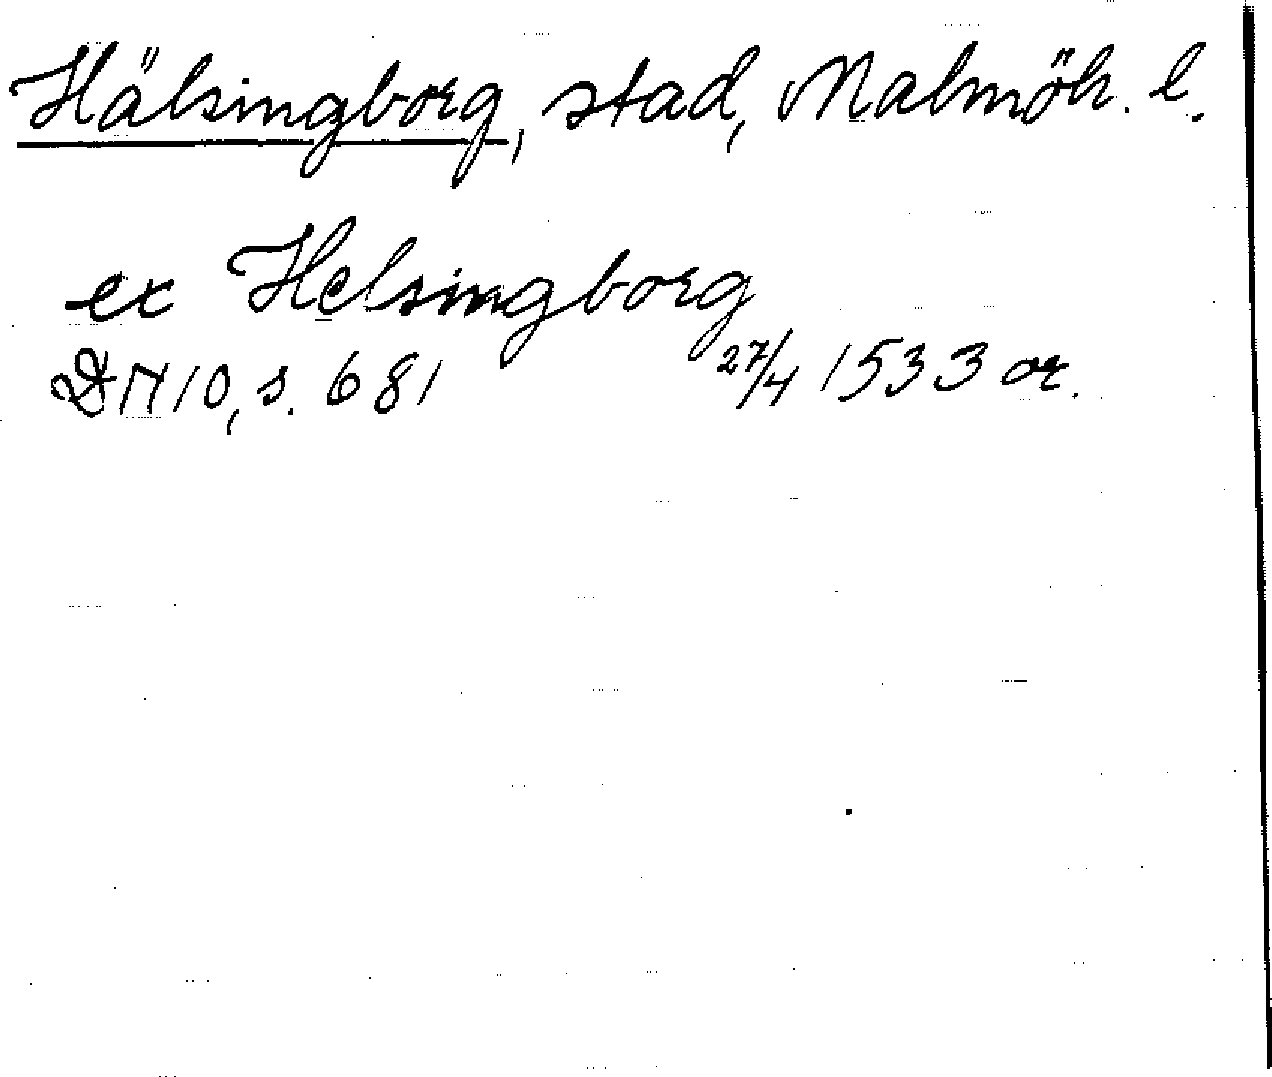 Hälsingborg, stad, Malmöh. l.
ex Helsingborg
DN 10, s. 681 27/4 1533 or.